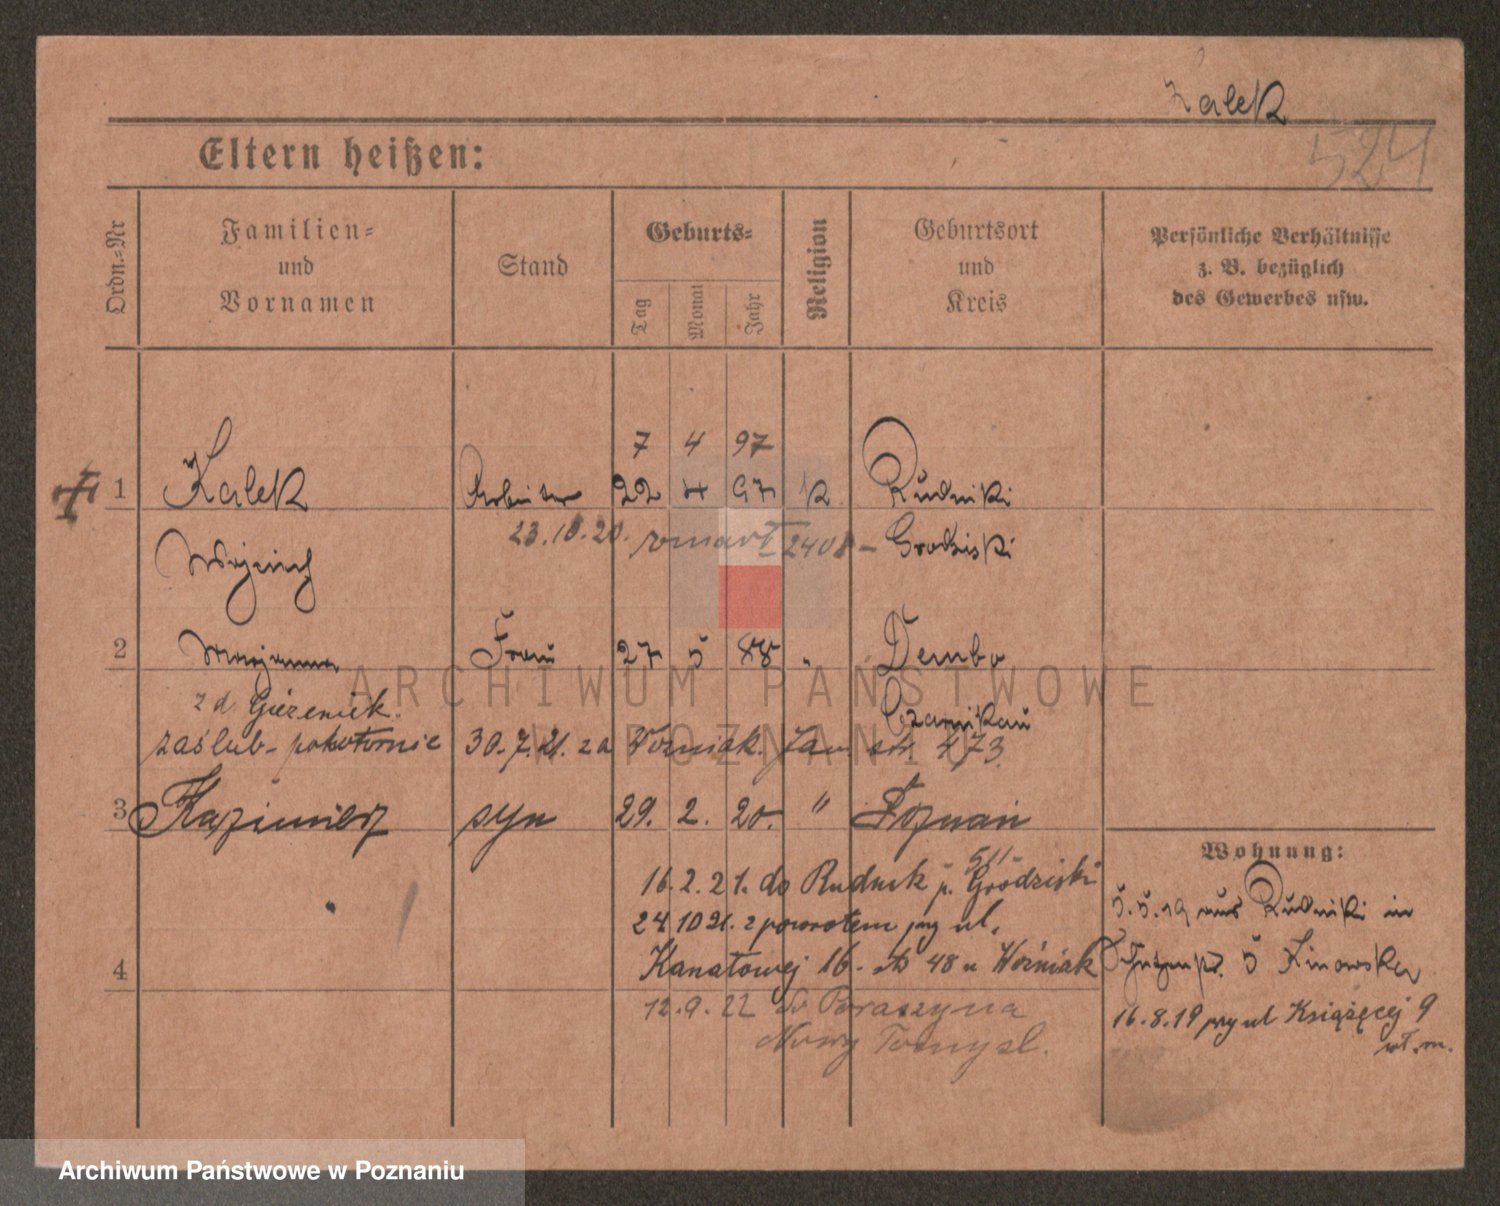 Kalek
524
Eltern heißen:
Ordn.-Nr
Familien-
und
Vornamen
Stand
Geburts-
Tag
Monat
Jahr
Religion
Geburtsort
und
Kreis
Persönliche Verhältnisse
z. B. bezüglich
des Gewerbes usw.
7 4 97
1 Kalek Arbeiter 22 4 97 k Rudniki
23.10.20. zmarł 2408 Grodziski
Wojciech
2 Marjanna Frau 27 5 88 " Dembo
z d. Gieżenick. Czarnikau
zaślub. pokotornie 30.7.21. za Woźniak Jan. str. 473
3 Kazimierz syn 29. 2. 20. " Poznań
Wohnung:
511
16.2.21. do Rudnik p. Grodziski
24.10 21. z powrotem przy ul.
4 Kanałowej 16 - 48 u Woźniak
12.9.22 do Paraszyna
Nowy Tomysl.
5.5.19 aus Rudniki in
5 Linowska
16.8.19 przy ul Książęcej 9
wł. m.
ARCHIWUM PAŃSTWOWE
W POZNANIU
Archiwum Państwowe w Poznaniu